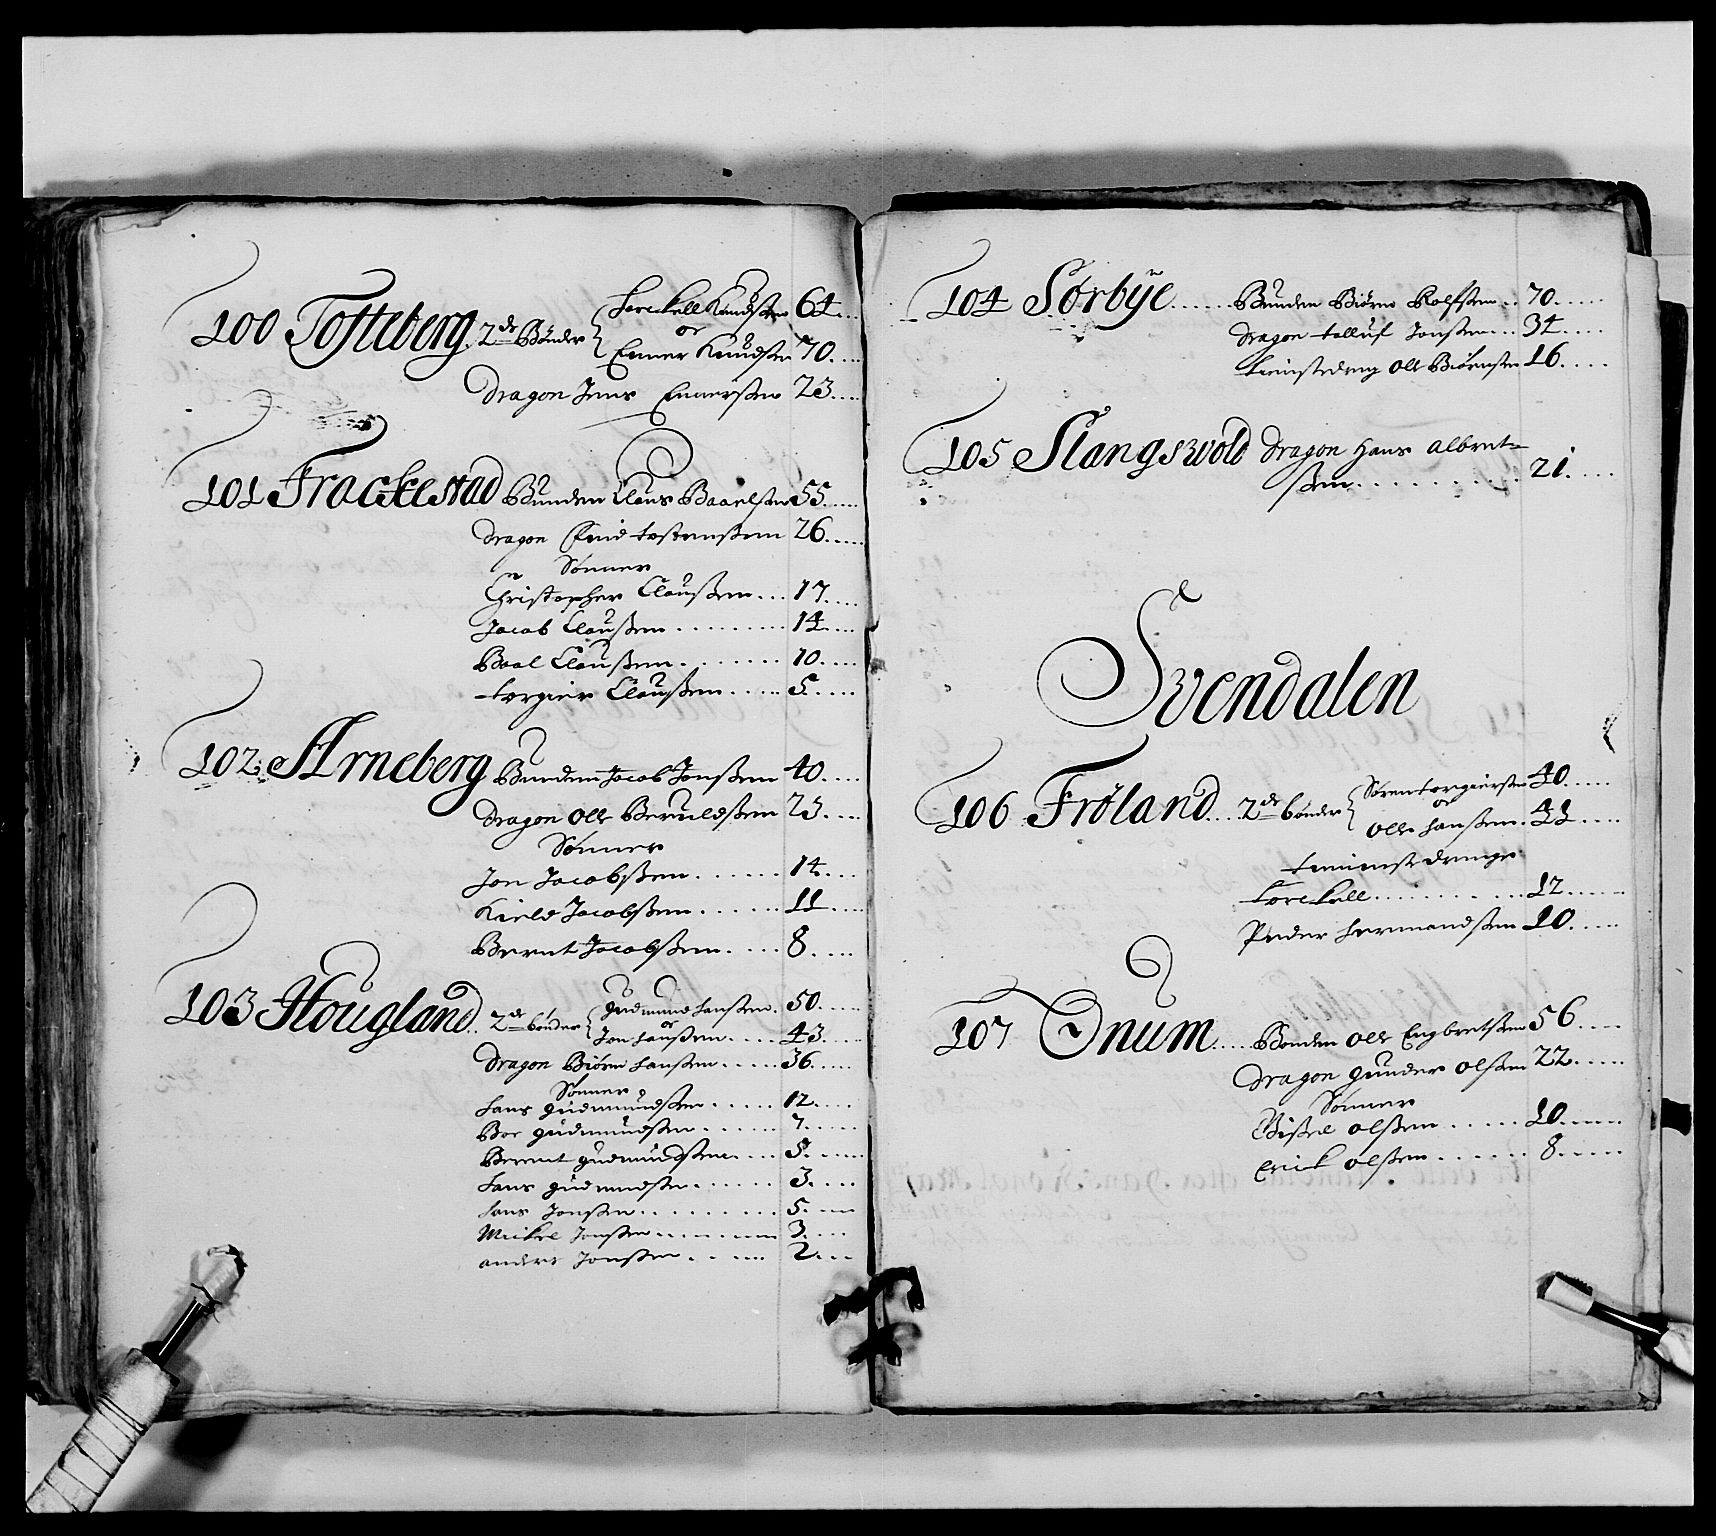 100 Tofteberg 2de Bønder { Torckell Knudssen 64
or
Enner Knudssen 70
Dragon Jens Ennerssen 23
101 Frackestad Bunden Claus Baaelssen 55
Dragon Enid tostenssenn 26
Sønner
Christopher Claussen 17
Jacob Claussen 14
Baal Claussen 10
torgier Claussen 5
102 Arneberg Bunden Jacob Jonssen 40
Dragon Olle Beruldssen 23
Sønner
Jon Jacobssen 14
Kield Jacobssen 11
Bernt Jacobssen 8
103 Hougland 2de bønder { gudmund hanssen 50
or
Jon hanssen 43
Dragon Biørn hanssen 36
Sønner
hans gudmundssen 12
Boe gudmundssen 7
Berent gudmundssen 5
hans gudmundssen 3
hans Jonssen 5
Mickel Jonssen 3
anders Jonssen 2
104 Sørbÿe Bunden Biørn Rolfssen 70
Dragon tolluf Jonssen 34
tienistedreng Olle Biørnssen 16
105 Slangswold Dragon Hans albret=
ssen 21
Svendalen
106 Frøland 2de bønder { Søren torgierssen 40
or
Olle hanssen 41
tienniste drenge
torckell 12
Peder hermandssen 10
107 Onum Bonden Olle Engbretssen 56
Dragon gunder olssen 22
Sønner
olssen 10
Erick olssen 8